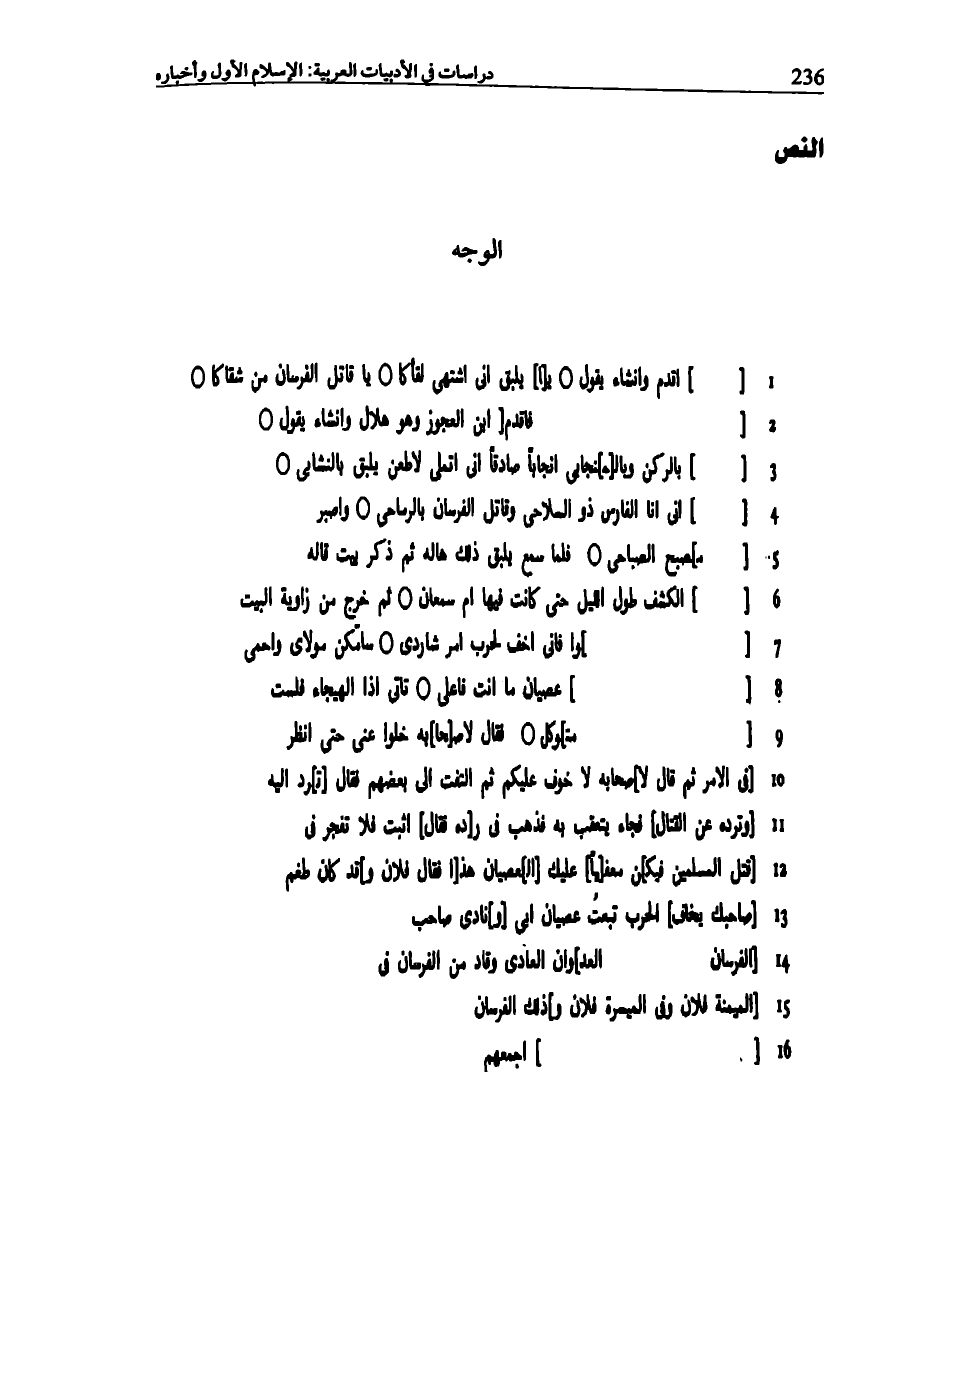 236 دراسات في الأدبيات العربية: الإسلام الأول وأخباره
النص
الوجه
1 [ ] اقدم وانشاء يقول ○ يا[ا] يلبق انى اشتهى لقأكا ○ يا قاتل الفرسان من شقاكا ○
2 [ فاقدم] ابن العجوز وهو هلال وانشاء يقول ○
3 [ ] بالركن وبال[م]نجابى انجاباً صادقاً انى اتملى لاطعن يلبق بالنشابى ○
4 [ ] انى انا الفارس ذو السلاحى وقاتل الفرسان بالرماحى ○ واصبر
5 [ م]صبح الصباحى ○ فلما سمع يلبق ذلك هاله ثم ذكر بيت قاله
6 [ ] الكشف طول الليل حتى كانت فيها ام سمعان ○ ثم خرج من زاوية البيت
7 [ ]وا فانى اخف لحرب امر شاردى ○ سامكن مولاى واحمى
8 [ ] عصيان ما انت فاعلى ○ تاتى اذا الهيجاء فلست
9 [ مت]وكل ○ فقال لاص[حا]به خلوا عنى حتى انظر
10 [فى الامر ثم قال لا]صحابه لا خوف عليكم ثم التفت الى بعضهم فقال [ت]رد اليه
11 [وترده عن القتال] فجاء يتعقب به فذهب فى ر[ده فقال] اثبت فلا تفجر فى
12 [قتل المسلمين فيك]ن معف[ياً] عليك [ال]عصيان هذ[ا فقال فلان و]قد كان طغم
13 [صاحبك يخاف] الحرب تبعتُ عصيان ابى [و]نادى صاحب
14 [الفرسان العد]وان العادى وقاد من الفرسان فى
15 [الميمنة فلان وفى الميسرة فلان و]ذلك الفرسان
16 [ . ] اجمعهم